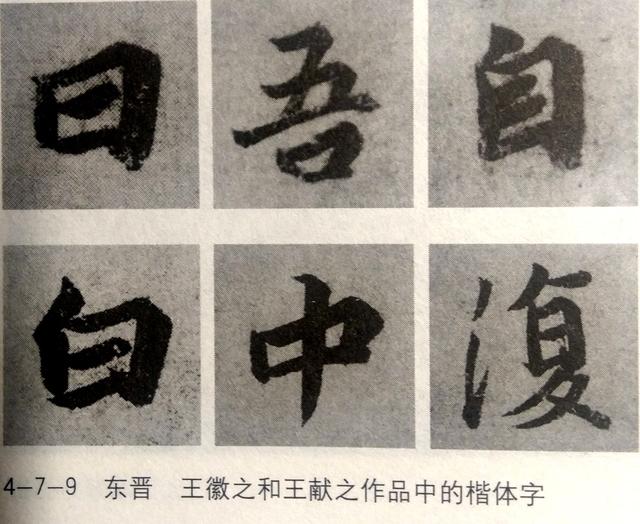 日 吾 自
白 中 復
4-7-9 东晋 王徽之和王献之作品中的楷体字